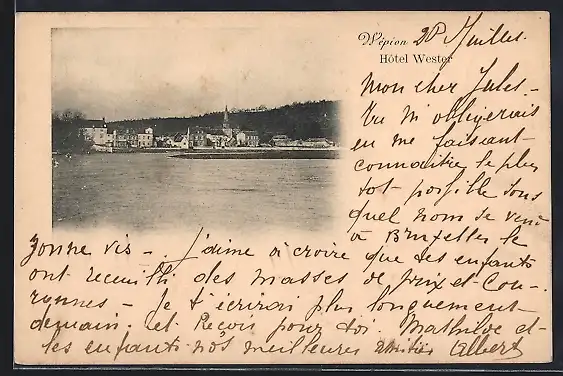 Wépion 28 Juillet.
Hôtel Wester
Mon cher Jules -
Tu m'obligerais
en me faisant
connaître le plus
tot possible sous
quel nom se
à Bruxelles le
bonne vis - . J'aime à croire que les enfants
ont receuilli des masses de prix et cou-
ronnes - Je t'écrirai plus longuement
demain. et Reçois pour toi. Mathilde et
les enfants nos meilleures amitiés Albert